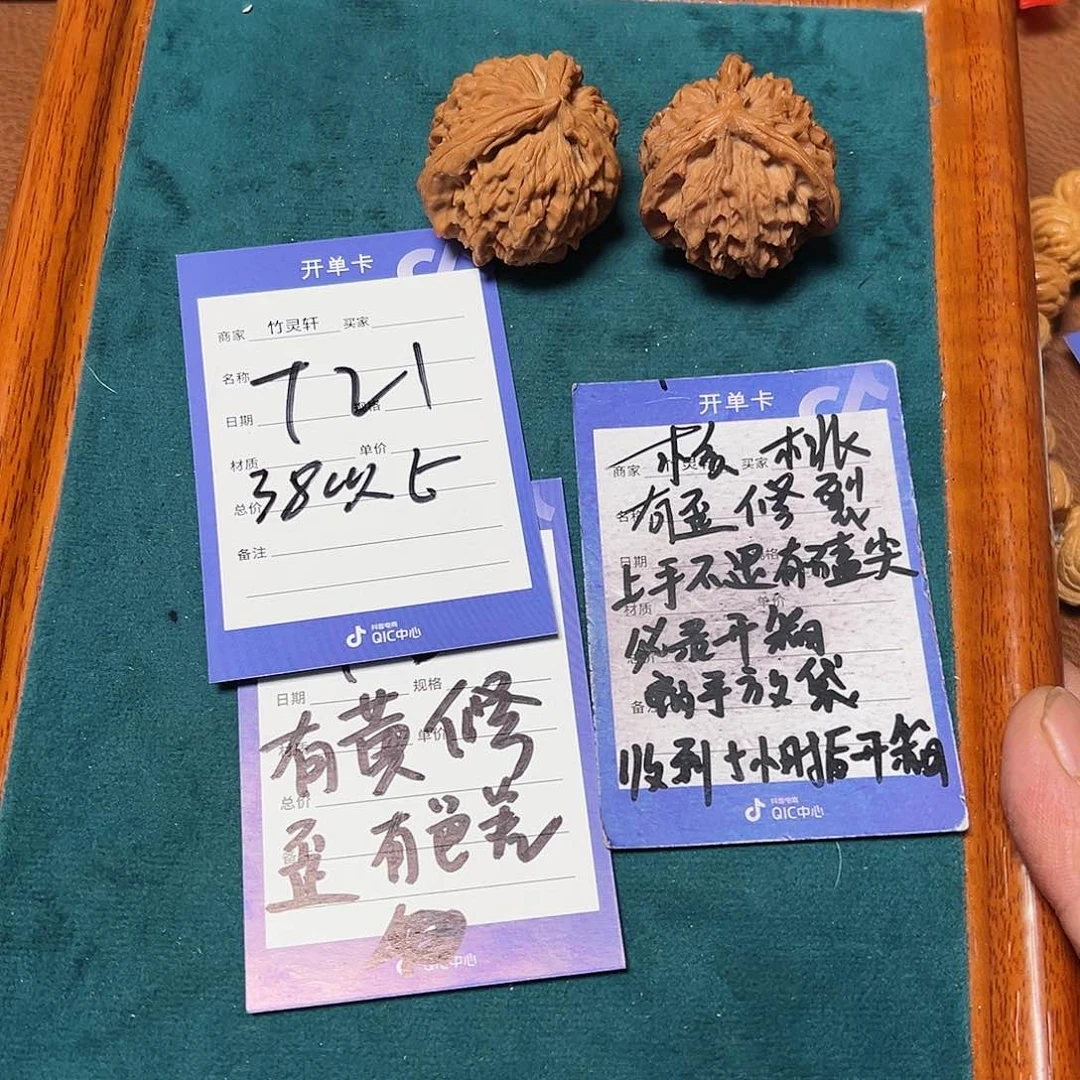 开单卡
商家 竹灵轩 买家
名称
T21
日期 规格
材质 单价
38以上
总价
备注
抖音电商
QIC中心
日期 规格
有黄修
单价
总价
歪 有色差
QIC中心
开单卡
核桃
商家 买家
有歪修裂
名称
日期 规格
上手不退有磕尖
材质 单价
必录开箱
两手放袋
备注
收到十小时后开箱
抖音电商
QIC中心